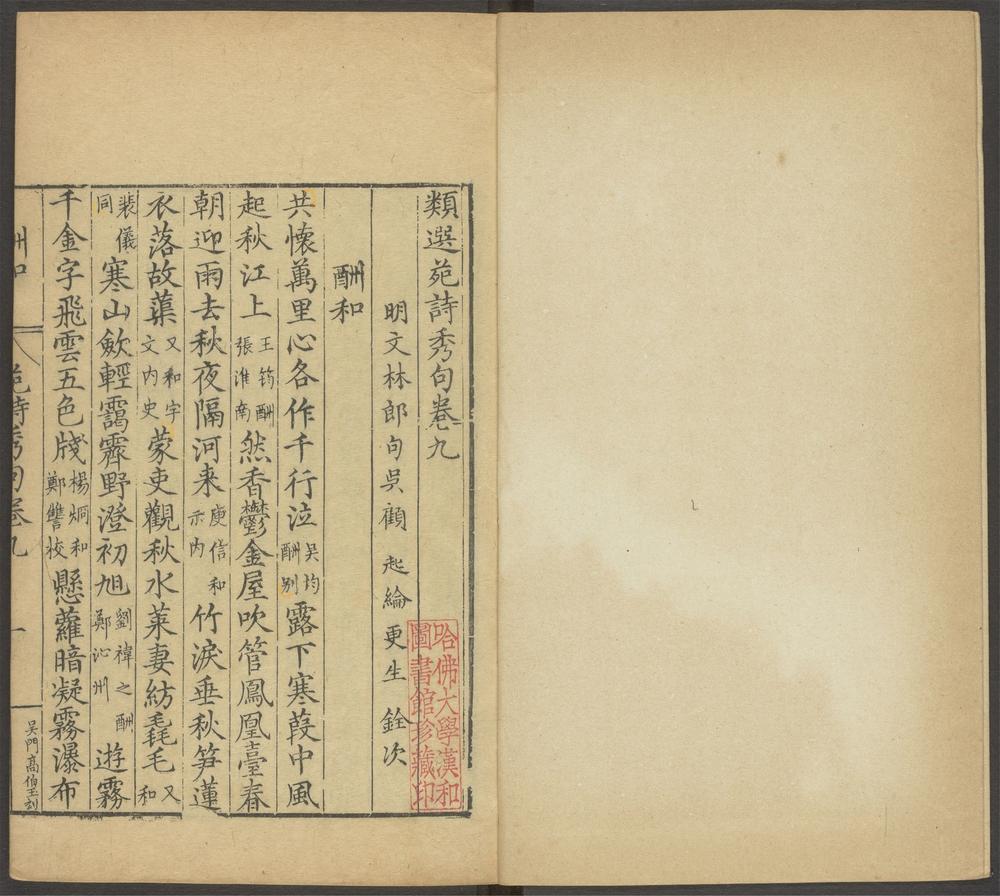 類選苑詩秀句卷九
明文林郎句吳顧起綸更生銓次
酬和
共懷萬里心各作千行泣吳均酬别露下寒葭中風
起秋江上王筠酬張淮南然香鬱金屋吹管鳳凰臺春
朝迎雨去秋夜隔河来庾信和示内竹淚垂秋笋蓮
衣落故蕖又和宇文内史蒙吏觀秋水莱妻紡毳毛又和
裴儀同寒山歛輕靄霽野澄初旭劉禕之酬鄭沁州遊霧
千金字飛雲五色牋楊烱和鄭讐校懸蘿暗凝霧瀑布
酬和 苑詩秀句卷九 一 吳門高伯玉刻
哈佛大學漢和
圖書館珍藏印